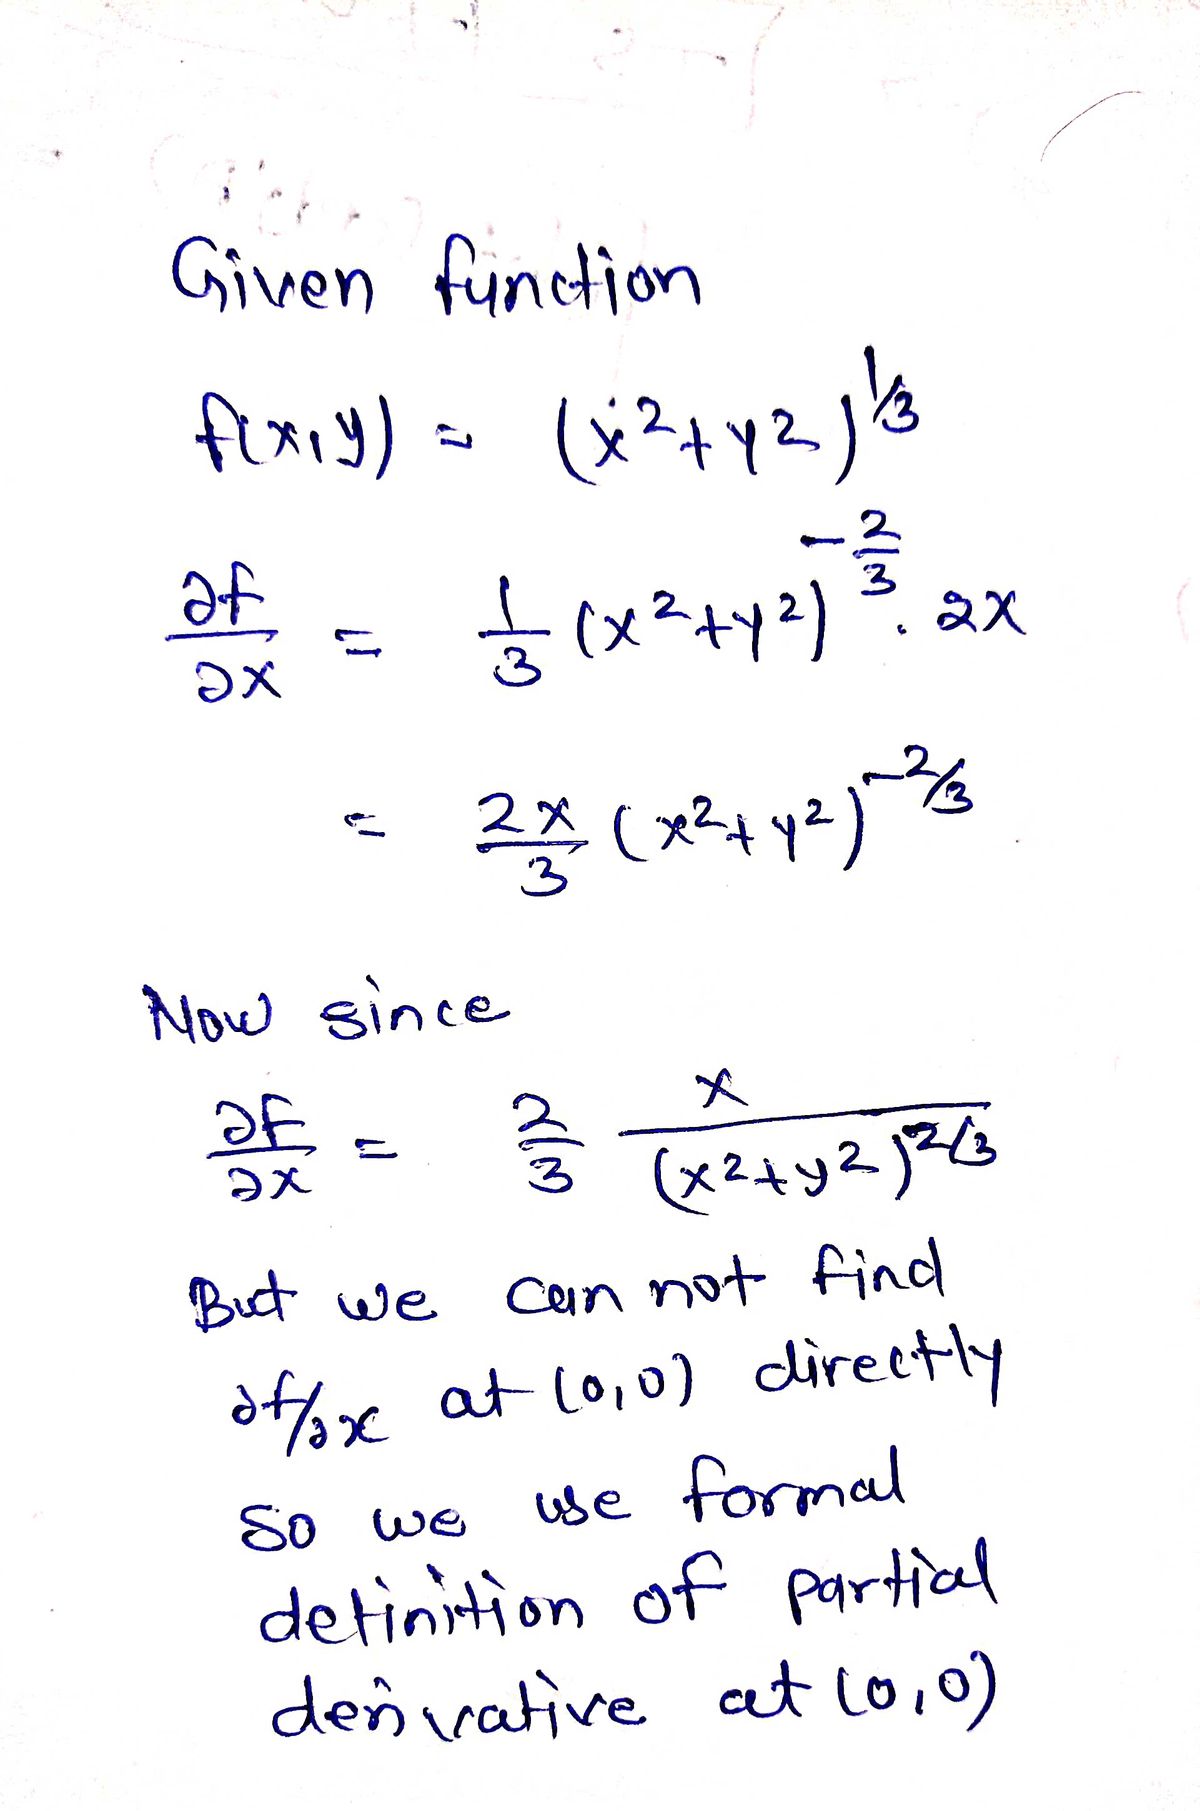 Given function
f(x,y) = (x²+y²)^1/3
∂f/∂x = 1/3 (x²+y²)^-2/3 . 2x
= 2x/3 (x²+y²)^-2/3
Now since
∂f/∂x = 2/3 x/(x²+y²)^2/3
But we can not find
∂f/∂x at (0,0) directly
so we use formal
definition of partial
derivative at (0,0)